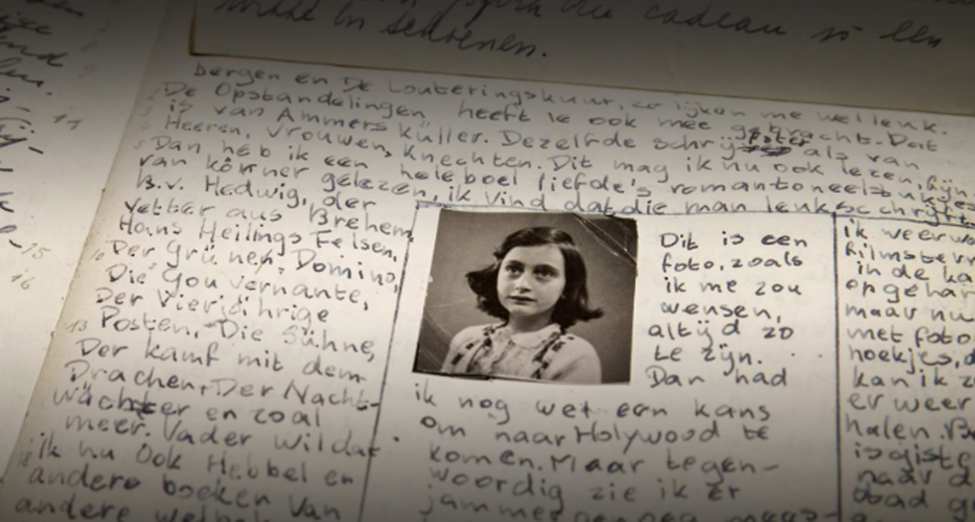 cadeau
en schoenen.
bergen en De Louteringskuur, ze lijken me wel leuk.
De Opstandelingen heeft ze ook mee gebracht. Dat
is van Ammers Küller. Dezelfde als van
Heeren, Vrouwen, Knechten. Dit mag ik nu ook lezen, fijn
Dan heb ik een heleboel liefde's romantoneelstukjes
van körner gelezen, ik vind dat die man leuk schrijft
B.v. Hedwig, der
Vetter aus Brehem,
Hans Heilings Felsen,
Der Grünen, Domino,
Die Gouvernante,
Der Vierjährige
Posten, Die Sühne,
Der kamf mit dem
Drachen, Der Nacht-
wächter en zoal
meer. Vader wil dat
ik nu Ook Hebbel en
andere boeken van
andere
Dit is een
foto, zoals
ik me zou
wensen,
altijd zo
te zijn.
Dan had
ik nog wel een kans
om naar Holywood te
komen. Maar tegen-
woordig zie ik er
jammer genoeg
ik weer
filmster
in de ka
maar nu
met foto
hoekjes,
kan ik z
er weer
halen.
is giste
naar d
15
16